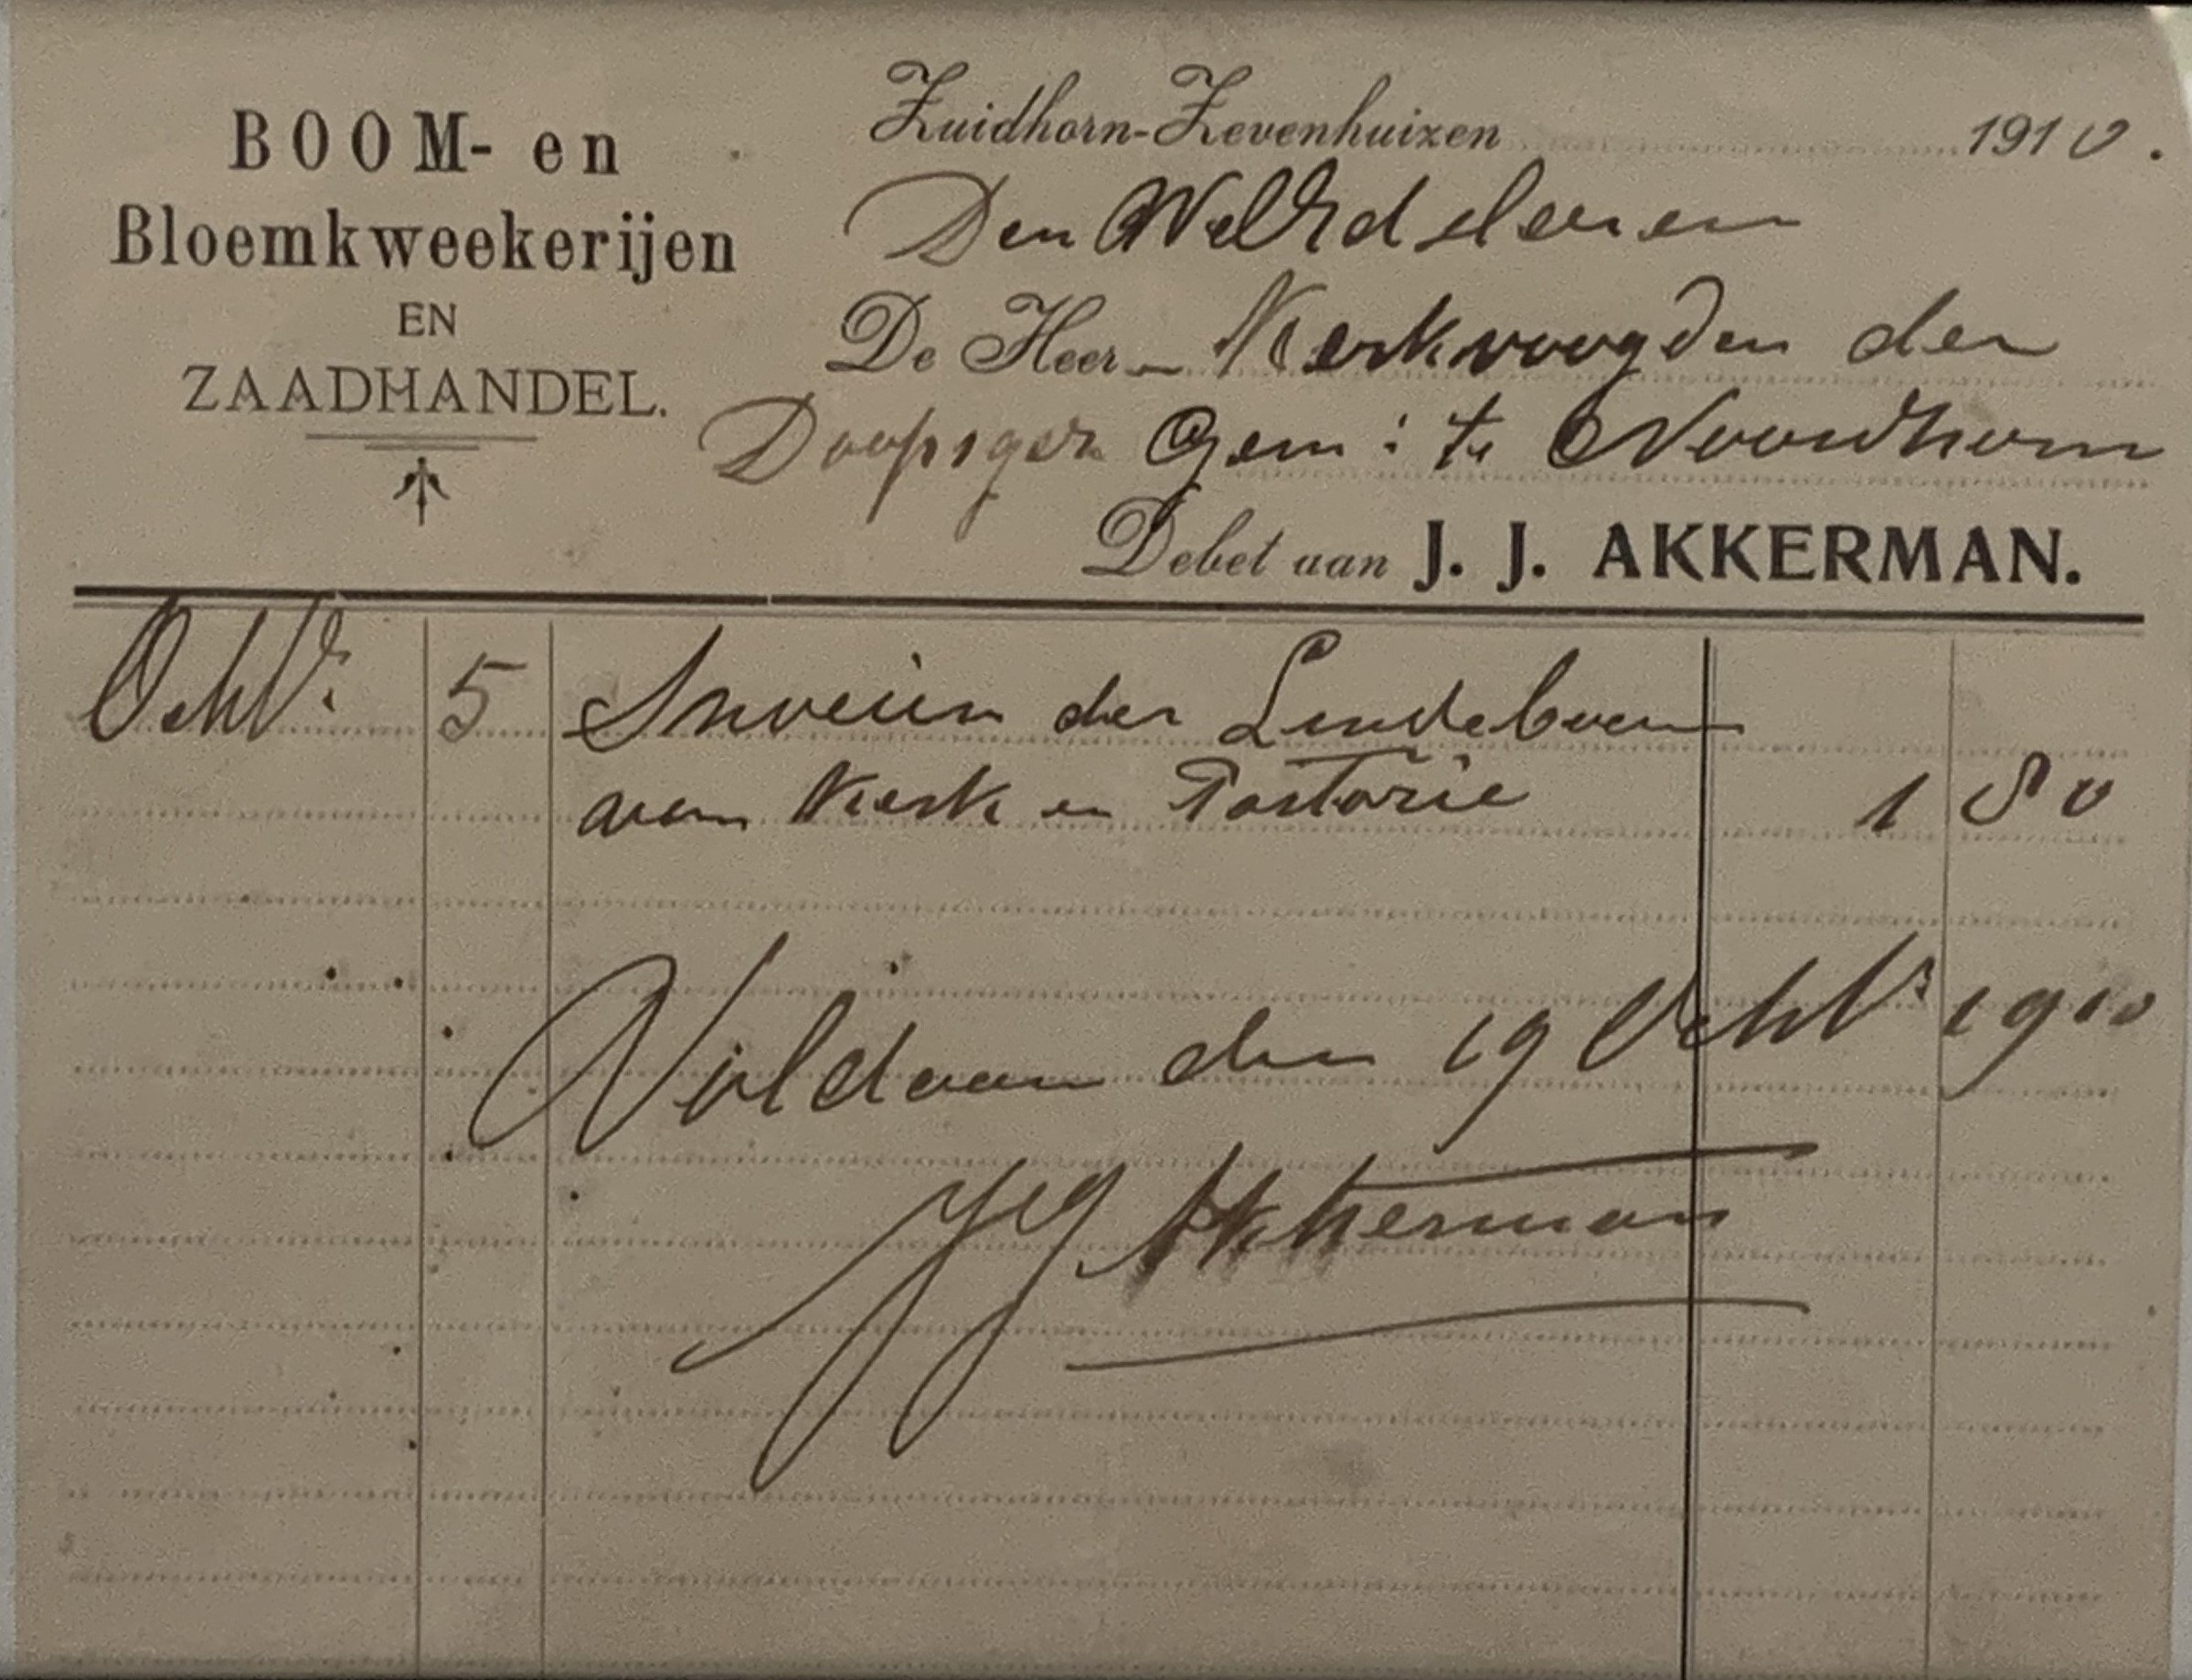 BOOM- en
Bloemkweekerijen
EN
ZAADHANDEL.
Zuidhorn-Zevenhuizen 1910.
Den WelEd
De Heer n Kerkvoogden der
Doopsgez Gem: te Noordhorn
Debet aan J. J. AKKERMAN.
Octbr 5 Snoeien der Lindeboom
aan Kerk en Pastorie 1 80
Voldaan den 19 Octbr 1910
JJ Akkerman